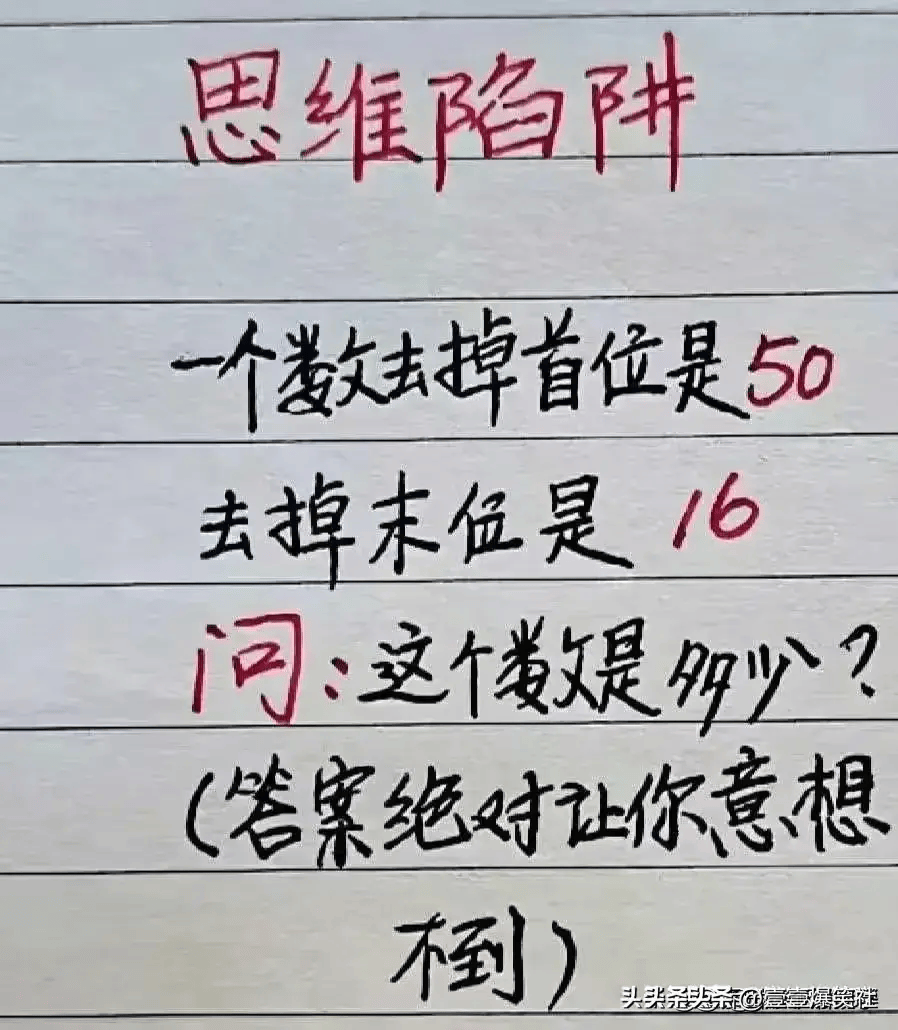 思维陷阱
一个数去掉首位是50
去掉末位是 16
问:这个数是多少?
(答案绝对让你意想
不到)
头头条头条@壹壹爆笑硅